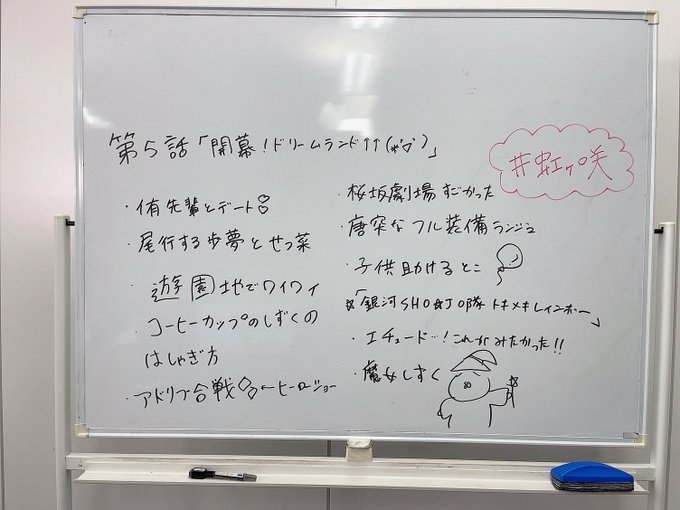 第5話「開幕!ドリームランド↑↑(*'▽')」
#虹ヶ咲
・侑先輩とデート♡
・尾行する歩夢とせつ菜
・遊園地でワイワイ
コーヒーカップのしずくの
はしゃぎ方
・アドリブ合戦 ←ヒーローショー
・桜坂劇場すごかった
・唐突なフル装備ランジュ
・子供助けるとこ
☆「銀河SHO☆JO隊 トキメキレインボー」
・エチュード…!これがみたかった!!
・魔女しずく